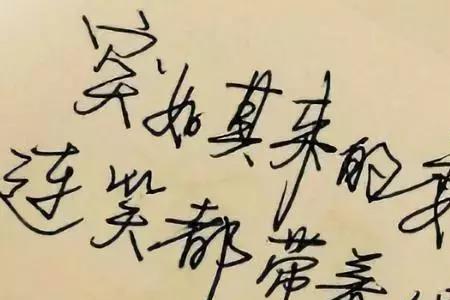 突如其来的
连笑都带着